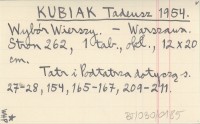 KUBIAK Tadeusz 1954.
Wybór Wierszy. — Warszawa.
Stron 262, 1 tab., ofd., 12 x 20
cm.
Tatr i Podtatrza dotyczą s.
27-28, 154, 165-167, 209-211.